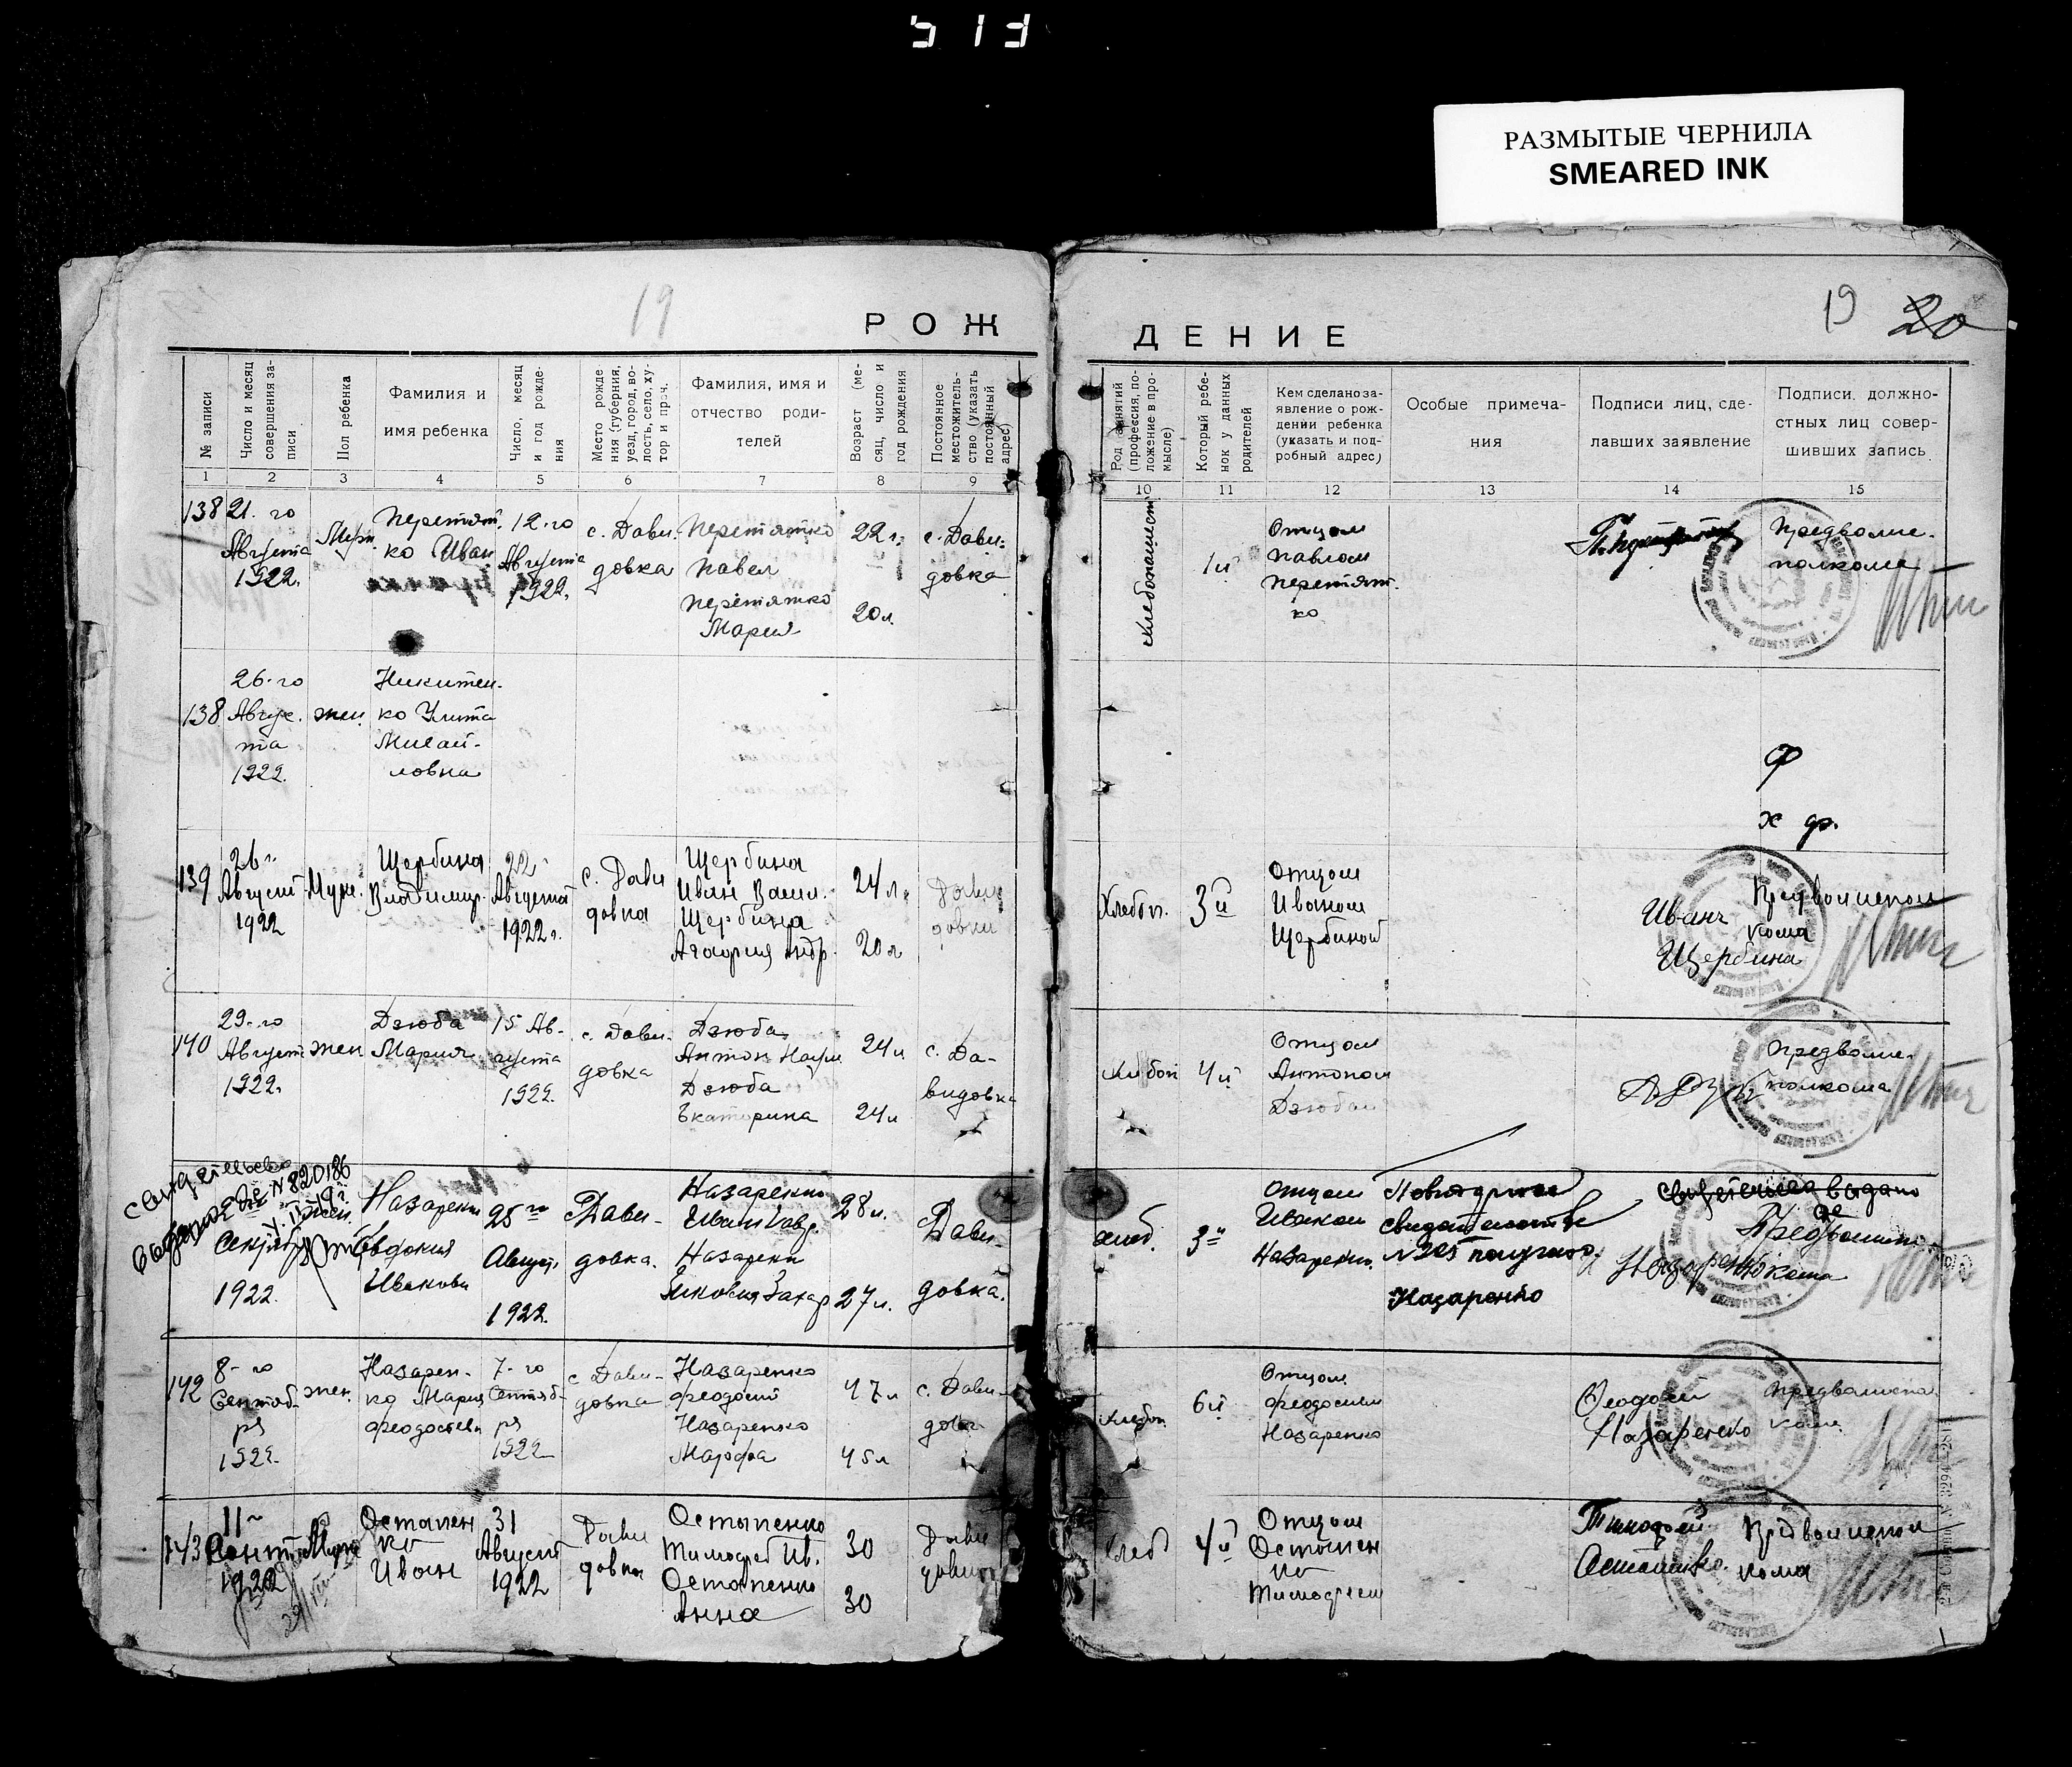 513
РАЗМЫТЫЕ ЧЕРНИЛА
SMEARED INK
19
19 20
РОЖ
ДЕНИЕ
№ записи
Число и месяц
совершения за-
писи
Пол ребенка
Фамилия и
имя ребенка
Число, месяц
и год рожде-
ния
Место рожде
ния (губерния,
уезд, город, во-
лость, село, ху-
тор и проч.
Фамилия, имя и
отчество роди-
телей
Возраст (ме-
сяц, число и
год рождения
Постоянное
местожитель-
ство (указать
постоянный
адрес)
Род занятий
(профессия, по-
ложение в про-
мысле)
Который ребе-
нок у данных
родителей
Кем сделано за-
явление о рож-
дении ребенка
(указать и под-
робный адрес)
Особые примеча-
ния
Подписи лиц, сде-
лавших заявление
Подписи должно-
стных лиц совер-
шивших запись
1 2 3 4 5 6 7 8 9
10 11 12 13 14 15
138
21-го
Августа
1922.
Муж.
Перетят-
ко Иван
12-го
Августа
1922.
с. Дави-
довка
Перетятко
Павел
Перетятко
Мария
22 г.
20 л.
с. Дави-
довка
хлебопашест
1й
Отцом
Павлом
Перетят-
ко
Предволис-
полкома
138
26-го
Авгус-
та
1922.
жен.
Никитен-
ко Улита
Михай-
ловна
139
26 г.
Август
1922
Муж.
Щербина
Владимир
22
Августа
1922 г.
с. Дави
довка
Щербина
Иван Васил.
Щербина
Агафия Андр.
24 л.
20 л
Дави
довки
Хлебоп.
3й
Отцом
Иваном
Щербиной
Иван
Щербина
Предволиспол
кома
140
29-го
Август
1922.
жен
Дзюба
Мария
15 Ав-
густа
1922.
с. Дави-
довка
Дзюба
Антон Наум
Дзюба
Екатерина
24 л
24 л
с. Да-
видовка
хлебоп
4й
Отцом
Антоном
Дзюбом
Предволис-
полкома
свидетельство
выдано № 820186
жен.
1922.
Назаренко
Евдокия
Иванова
25го
Август.
1922.
с Дави-
довка.
Назаренко
Иван
Назаренк
Захар
28 л.
27 л.
с Дави-
довка.
хлеб.
3й
Отцом
Иваном
Назаренко.
Повторное
свидетельство
№ 205 получил
Назаренко
свидетельство выдано
Предволиспол
кома
142
8-го
Сентяб-
ря
1922.
жен.
Назарен-
ко Мария
Феодосьевн
7-го
Сентяб-
ря
1922
с Дави-
довка
Назаренко
Феодосий
Назаренко
Марфа
47 л
45 л
с. Дави-
довка
хлебоп.
6й
Отцом
Феодосием
Назаренко
Феодосий
Назаренко
Предволиспол
кома
143
11
Сент
1922
Муж
Остапен
ко
Иван
31
Август
1922
Дави
довка
Остапенко
Тимофей Ив.
Остапенко
Анна
30
30
Дави
довка
хлеб
4й
Отцом
Остапен
ко
Тимофеем
Тимофей
Остапенко.
Предволиспол
кома